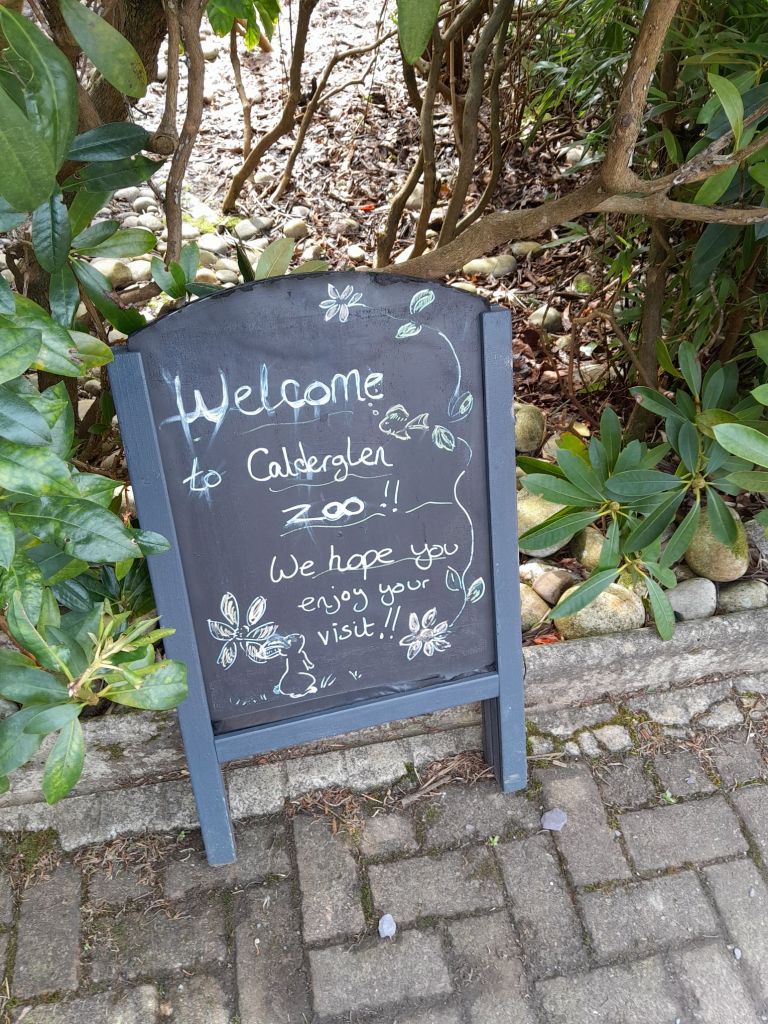 Welcome
to Calderglen
ZOO !!
We hope you
enjoy your
visit!!